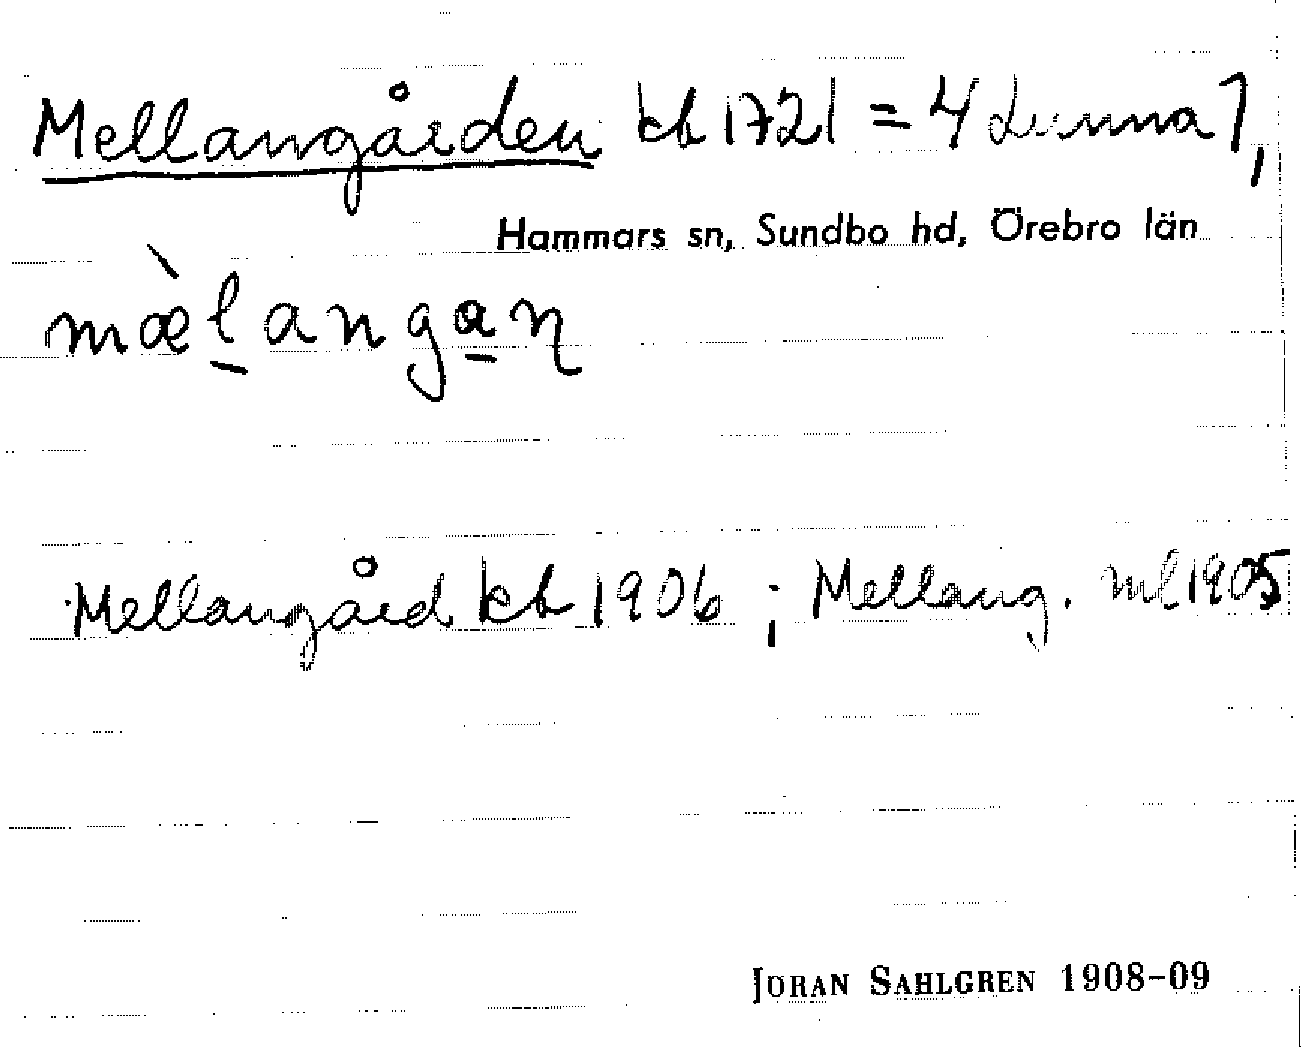 Mellangården kb 1721 = 4 Lunna 7,
Hammars sn, Sundbo hd, Örebro län
mæ̀l̠anga̠ɳ
Mellangård kb 1906 ; Mellang. ml 1905
JÖRAN SAHLGREN 1908-09